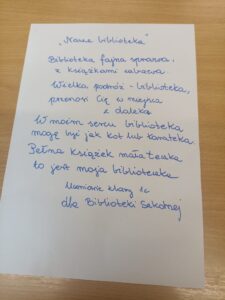 „Nasza biblioteka”
Biblioteka fajna sprawa,
z książkami zabawa.
Wielka podróż - biblioteka,
przenosi Cię w miejsca
z daleka
W moim sercu biblioteka
mogę być jak kot lub karateka.
Pełna książek mała teczka
to jest moja biblioteczka
Uczniowie klasy 1c
dla Biblioteki Szkolnej